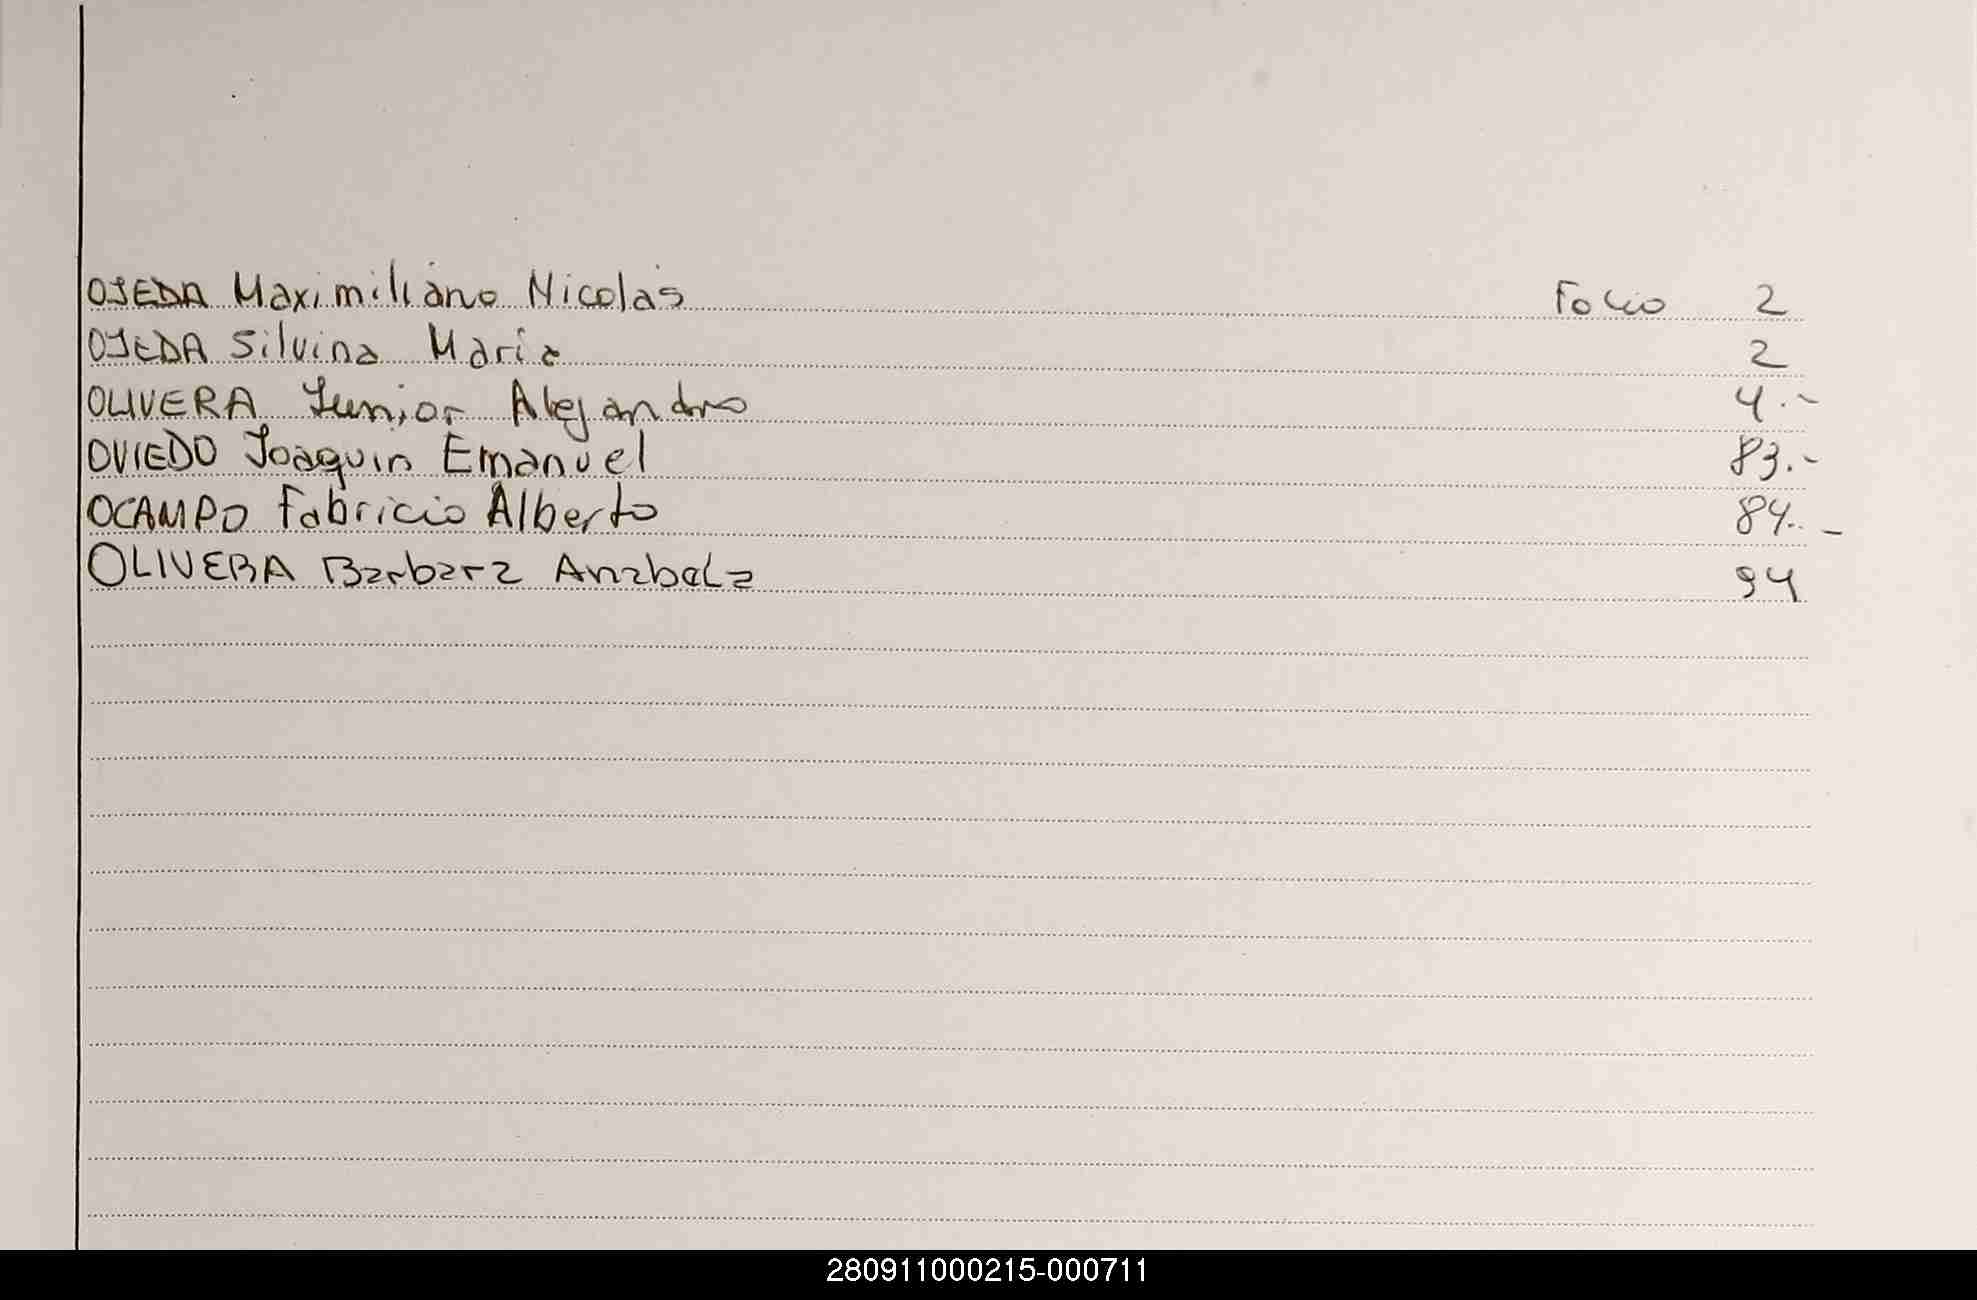 OJEDA Maximiliano Nicolás Folio 2
OJEDA Silvina Maria 2
OLIVERA Junior Alejandro 4.-
OVIEDO Joaquin Emanuel 83.-
OCAMPO Fabricio Alberto 84.-
OLIVERA Barbara Anabela 94
280911000215-000711